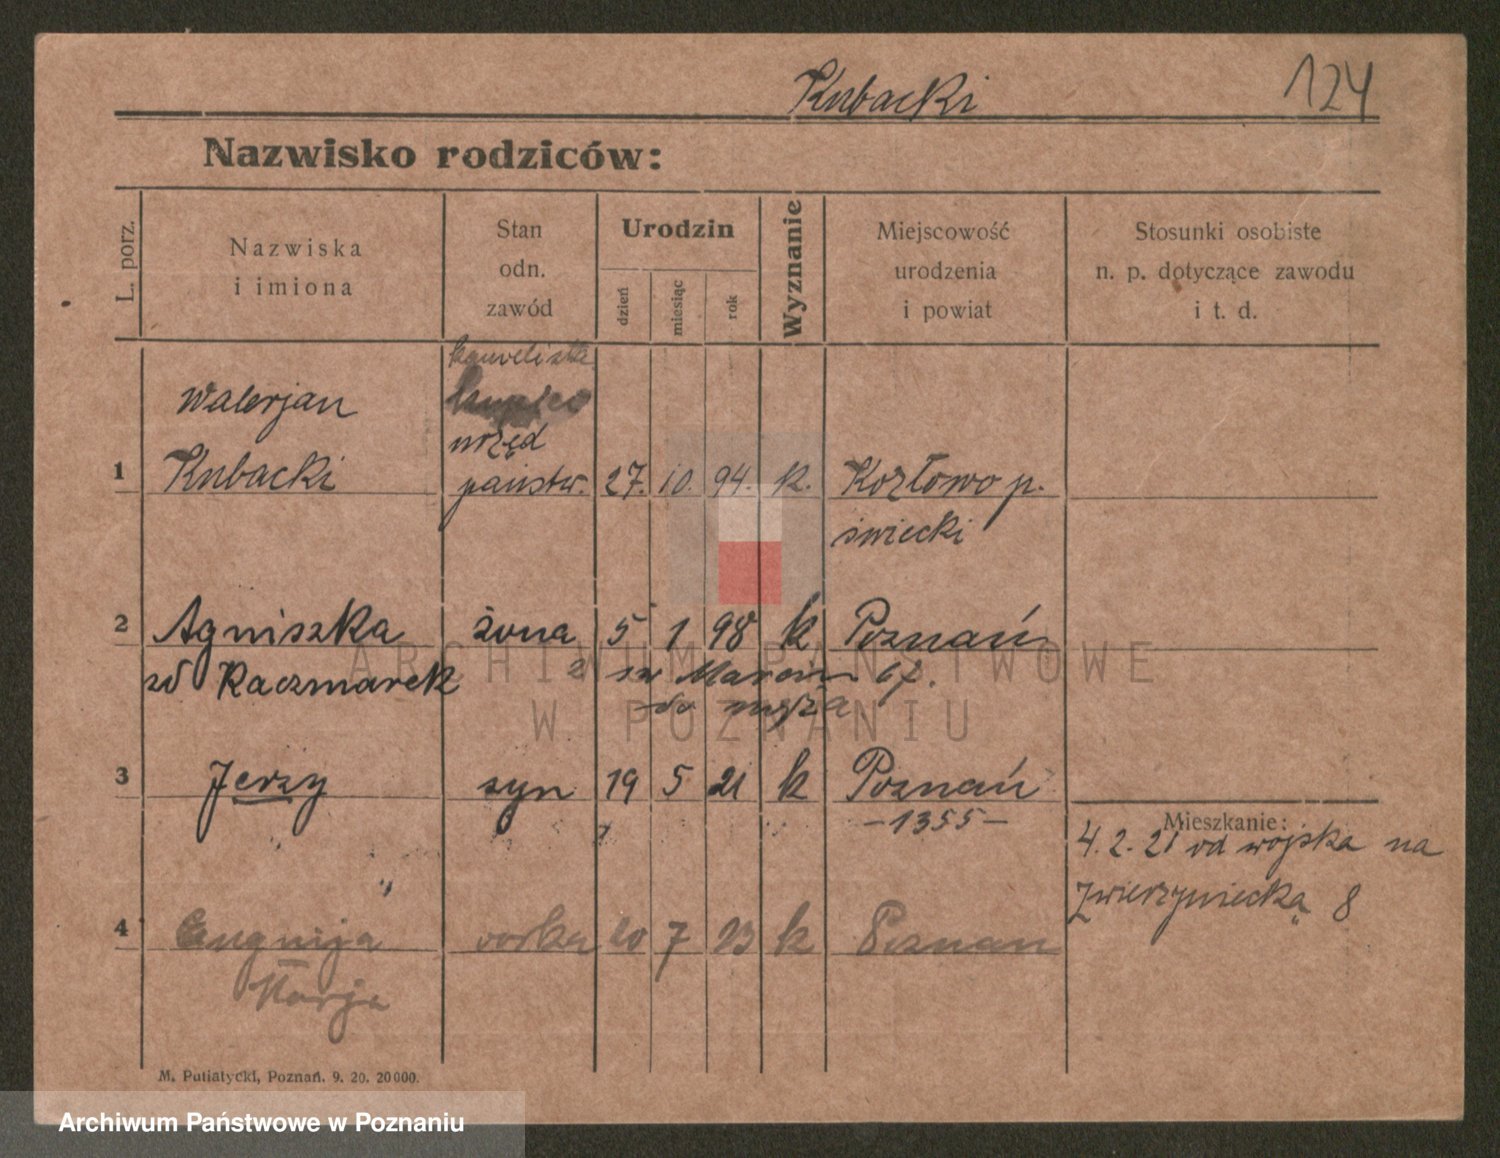 Kubacki 124
Nazwisko rodziców:
L. porz.
Nazwiska
i imiona
Stan
odn.
zawód
Urodzin
dzień
miesiąc
rok
Wyznanie
Miejscowość
urodzenia
i powiat
Stosunki osobiste
n. p. dotyczące zawodu
i t. d.
Walerjan
kupiec
urzęd
1 Kubacki państw. 27. 10. 94. k. Kozłowo p.
świecki
2 Agniszka żona 5 1 98 k Poznań
zd Kaczmarek z św Marcin 67.
do męża
3 Jerzy syn 19 5 21 k Poznań
-1355-
Mieszkanie:
4. 2. 21 od wojska na
Zwierzyniecką 8
4 Eugnija corka 20 7 23 k Poznan
Marja
M. Putiatycki, Poznań. 9. 20. 20000.
ARCHIWUM PAŃSTWOWE
W POZNANIU
Archiwum Państwowe w Poznaniu